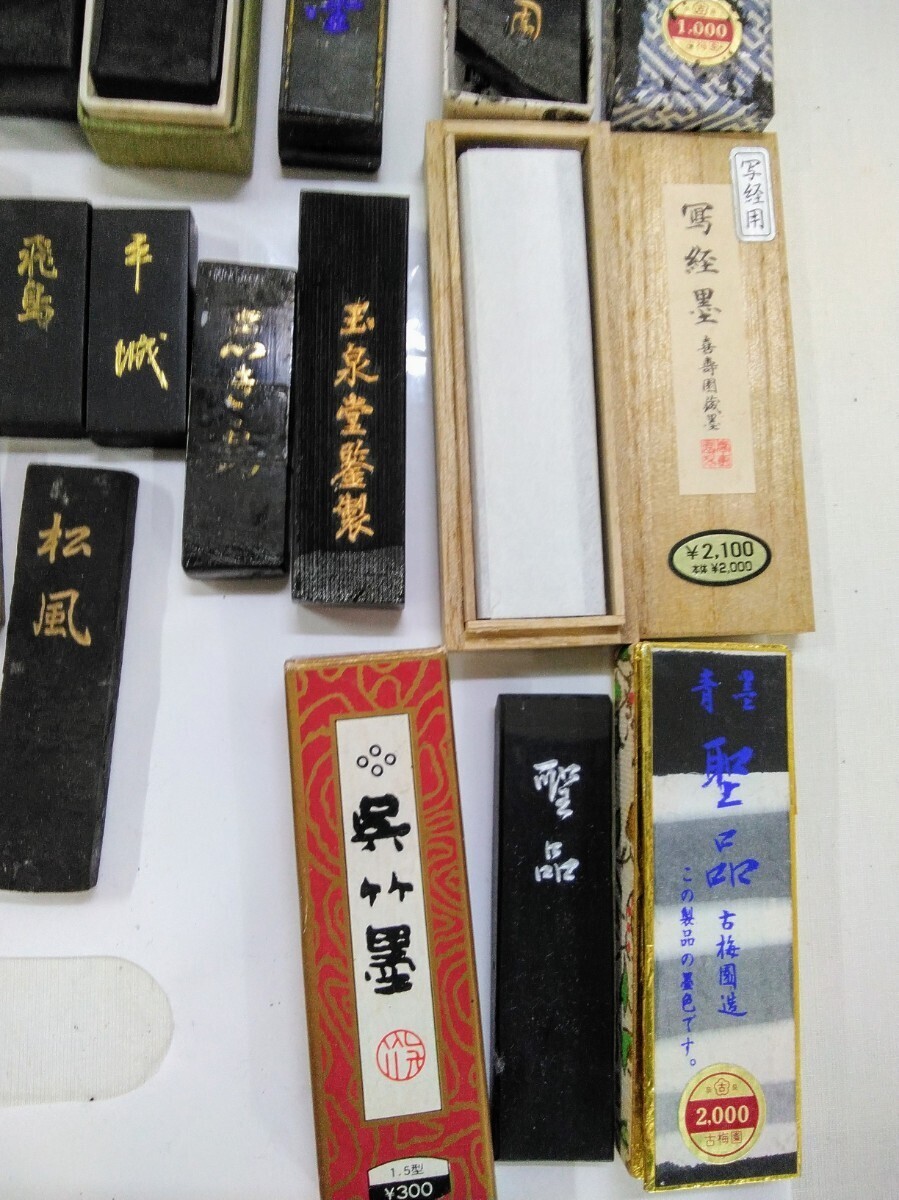 1,000
飛鳥
平城
玉泉堂鑒製
写経用
寫経墨
喜壽園蔵墨
¥2,100
本体 ¥2,000
松風
呉竹墨
1.5型
¥300
聖品
青墨
聖品
古梅園造
この製品の墨色です。
古
2,000
古梅園